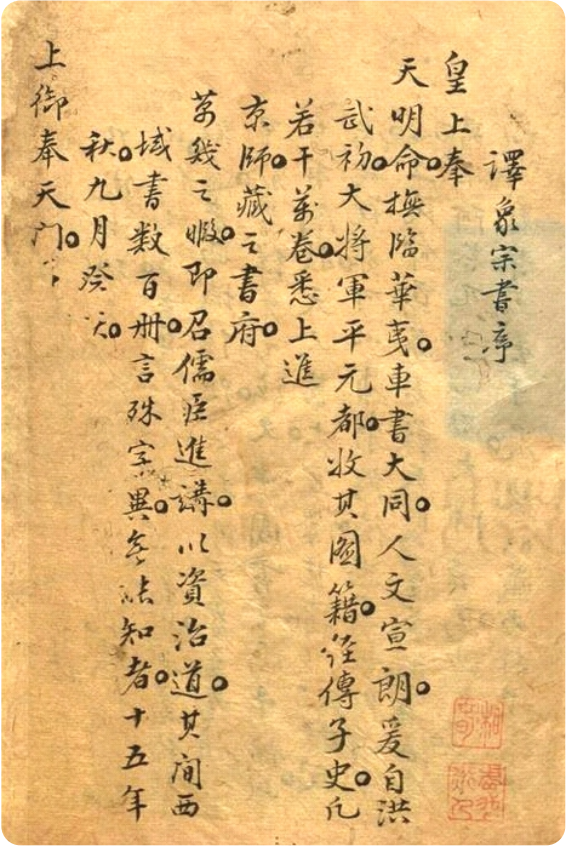 譯象宗書序
皇上奉
天明命。撫臨華夷。車書大同。人文宣朗。爰自洪
武初。大將軍平元都。收其圖籍。經傳子史。凡
若干萬卷。悉上進
京師。藏之書府。
萬幾之暇。即召儒臣進講。以資治道。其间西
域書數百冊。言殊字異。無能知者。十五年
秋。九月癸亥。
上御奉天門。